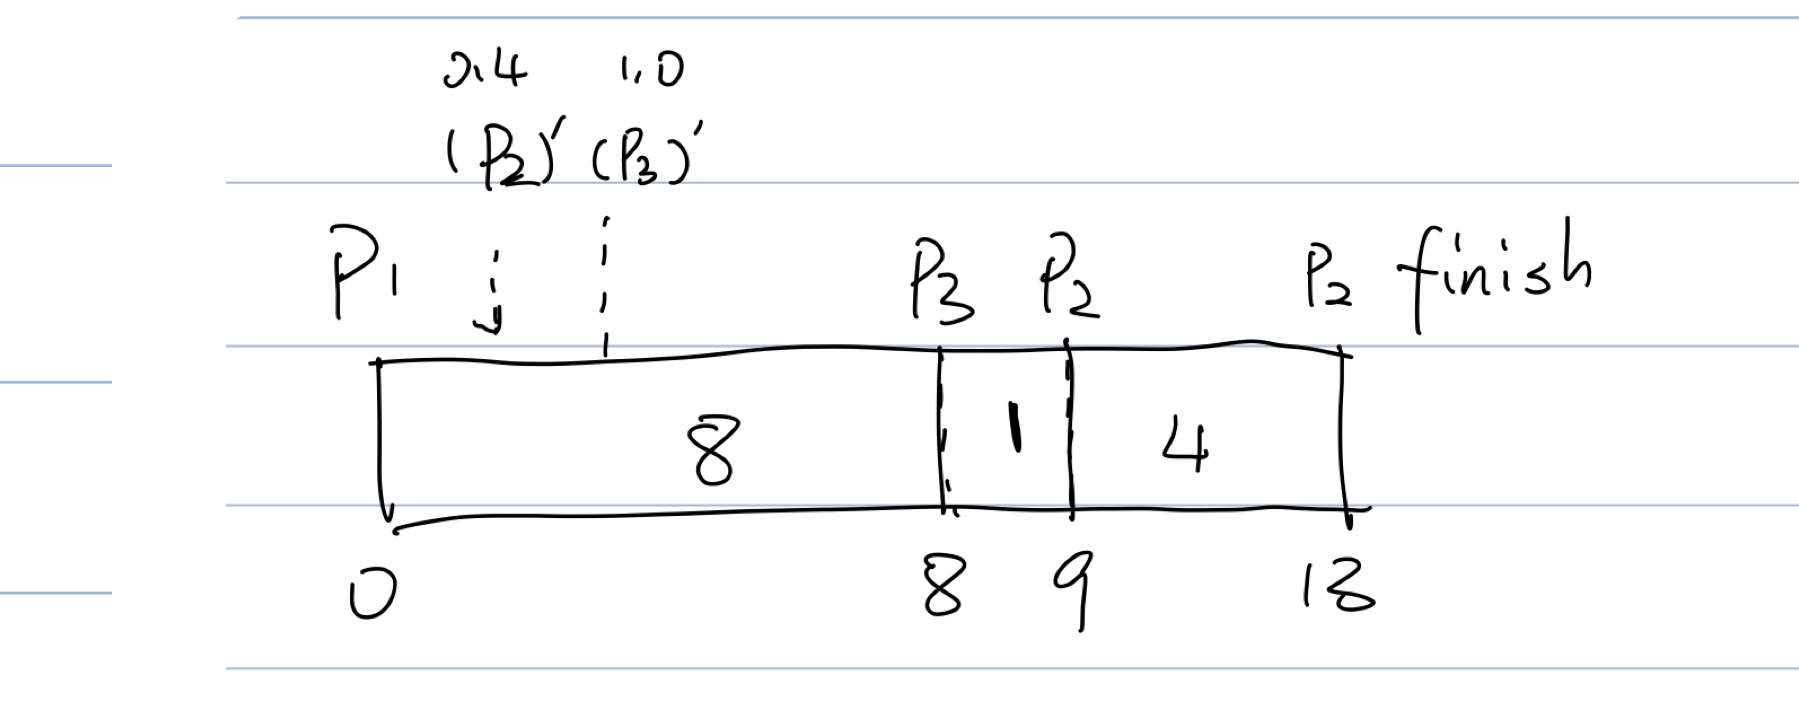 0.4 1.0
(P2)' (P3)'
P1 P3 P2 P2 finish
8 1 4
0 8 9 13